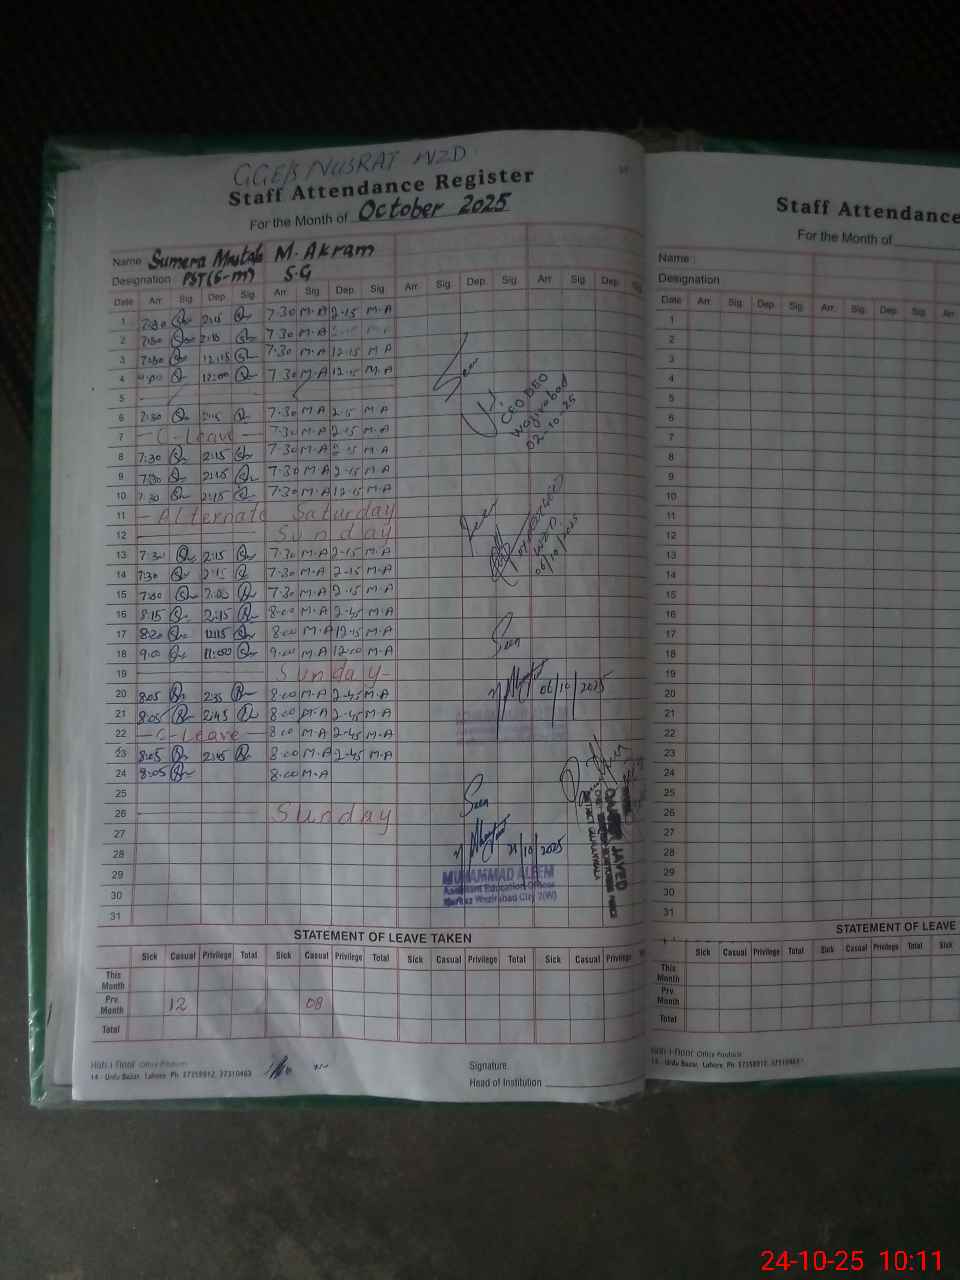 GGE/S NUSRAT WZD
Staff Attendance Register
For the Month of October 2025
Name Sumera Mustafa M. Akram
Designation PST(S-m) S.G
Date Arr. Sig. Dep. Sig. Arr. Sig. Dep. Sig. Arr. Sig. Dep. Sig. Arr. Sig. Dep. Sig.
1 7:30 2:15 7.30 M.A 2-15 M.A
2 7:30 2:15 7.30 M.A
3 7:30 12:15 7.30 M.A 12.15 M.A
4 12:00 7 30 M.A 12.15 M.A
5
6 7:30 2:15 7.30 M.A 2-15 M.A
7 C-Leave 7.30 M.A 2-15 M.A
8 7:30 2:15 7.30 M.A 15 M.A
9 7:30 2:15 7.30 M.A 2-15 M.A
10 7:30 2:15 7.30 M.A 12-15 M.A
11 Alternate Saturday
12 Sunday
13 7:30 2:15 7.30 M.A 2-15 M.A
14 7:30 2:15 7.30 M.A 2-15 M.A
15 7:30 7.30 M.A 2-15 M.A
16 8:15 8.00 M.A 2-45 M.A
17 8:20 12:15 8.00 M.A 12-15 M.A
18 9:00 9.00 M.A 12.00 M.A
19 Sunday
20 8:05 2:35 8.00 M.A 2-45 M.A
21 8:05 2:45 8.00 M.A 2-45 M.A
22 C-Leave 8.00 M.A 2-45 M.A
23 8:05 2:45 8.00 M.A 2-45 M.A
24 8:05 8.00 M.A
25
26 Sunday
27
28
29
30
31
Seen
CEO DEO
Wazirabad
02-10-25
Seen
WZD
06/10/2025
Seen
06/10/2025
Seen
21/10/2025
MUHAMMAD ALEEM
Assistant Education Officer
Markaz Wazirabad City 7(W)
JAVED
STATEMENT OF LEAVE TAKEN
Sick Casual Privilege Total Sick Casual Privilege Total Sick Casual Privilege Total Sick Casual Privilege
This Month
Prv. Month 12 08
Total
Office Products
14 - Urdu Bazar, Lahore. Ph: 37358912, 37310463
Signature
Head of Institution
Staff Attendance
For the Month of
Name :
Designation
Date Arr. Sig. Dep. Sig. Arr. Sig. Dep. Sig. Arr
1
2
3
4
5
6
7
8
9
10
11
12
13
14
15
16
17
18
19
20
21
22
23
24
25
26
27
28
29
30
31
STATEMENT OF LEAVE
Sick Casual Privilege Total Sick Casual Privilege Total Sick
This Month
Prv. Month
Total
Office Products
14 - Urdu Bazar, Lahore. Ph: 37358912, 37310463
24-10-25 10:11